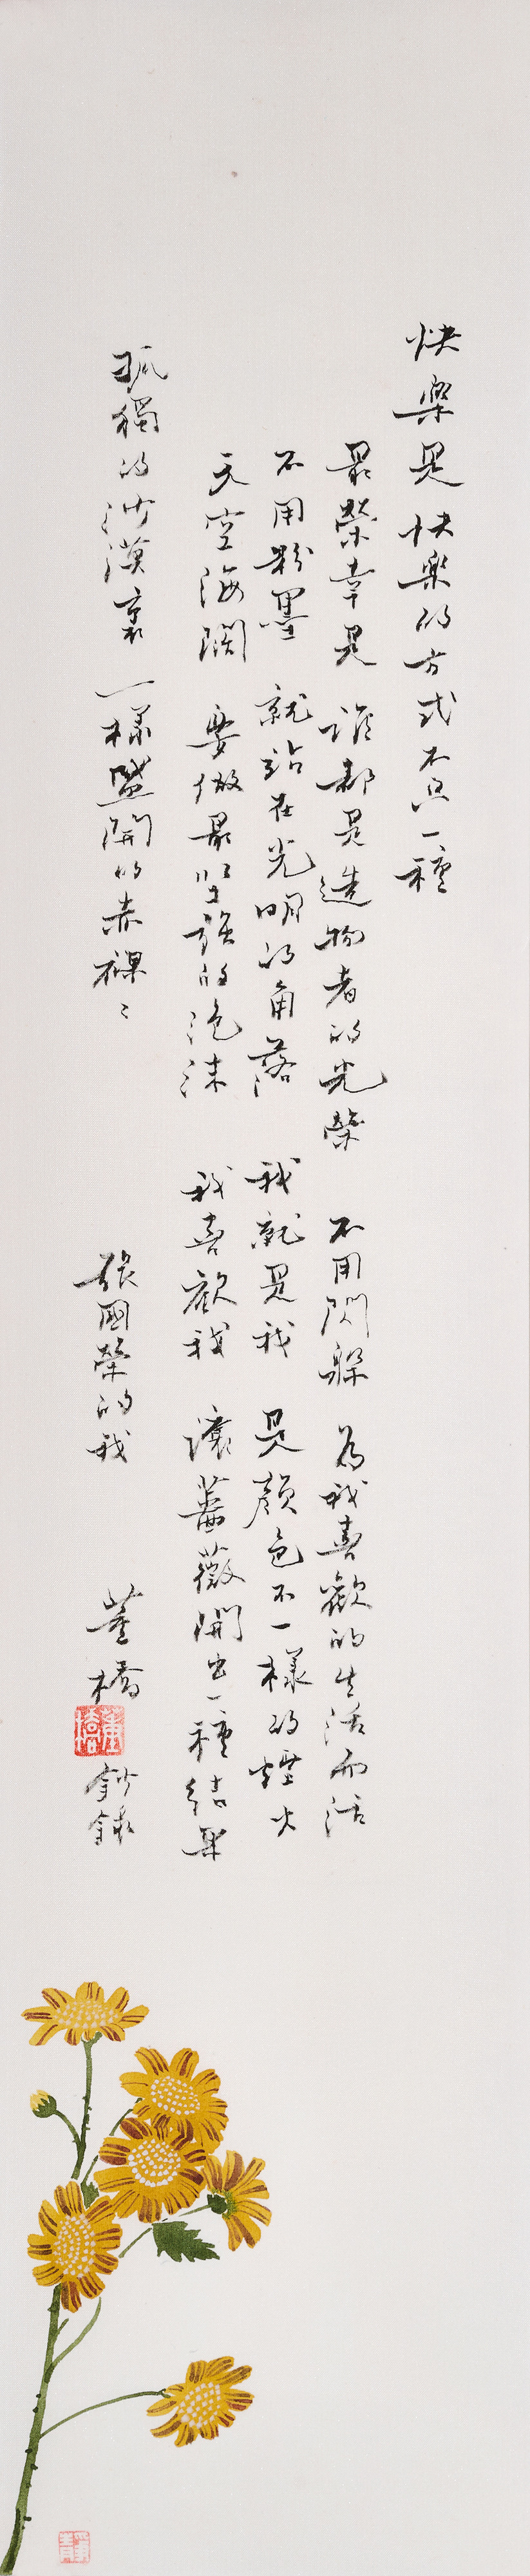 快樂是 快樂的方式不只一種
最榮幸是 誰都是造物者的光榮 不用閃躲 為我喜歡的生活而活
不用粉墨 就站在光明的角落 我就是我 是顏色不一樣的煙火
天空海闊 要做最堅強的泡沫 我喜歡我 讓薔薇開出一種結果
孤獨的沙漠裏 一樣盛開的赤裸〻 張國榮的我 董橋 鈔錄
董橋